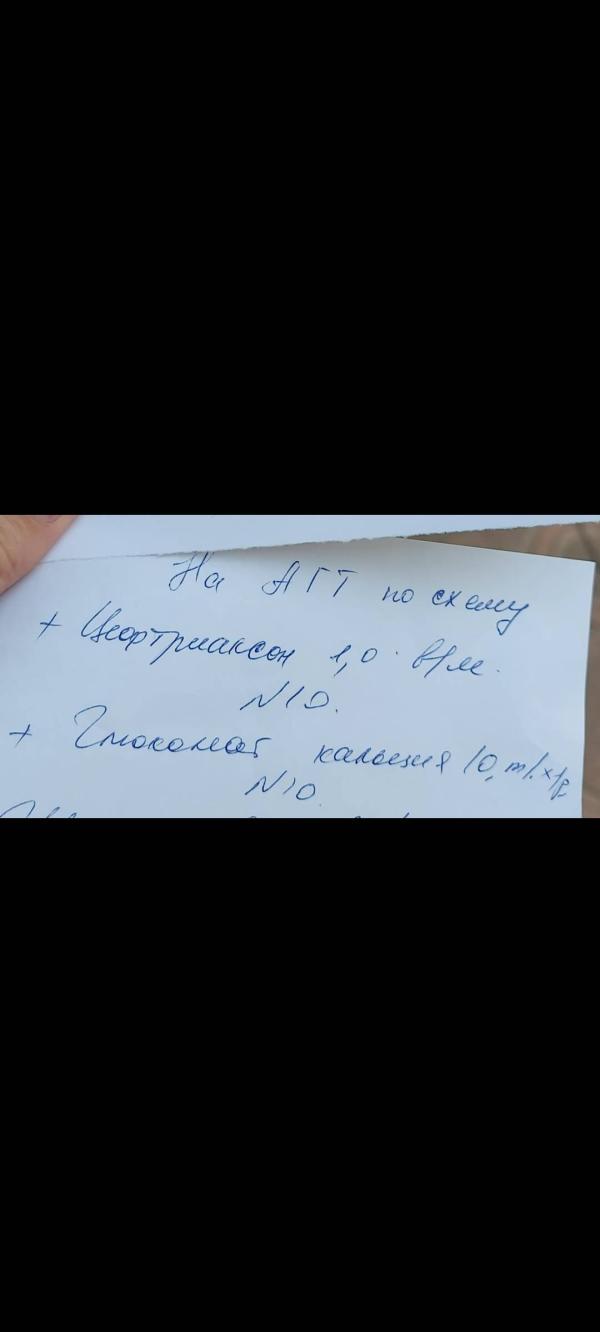 На АГТ по схему
+ Цефтриаксон 1,0 в/м.
N10.
+ Глюконат кальция 10,
N10.